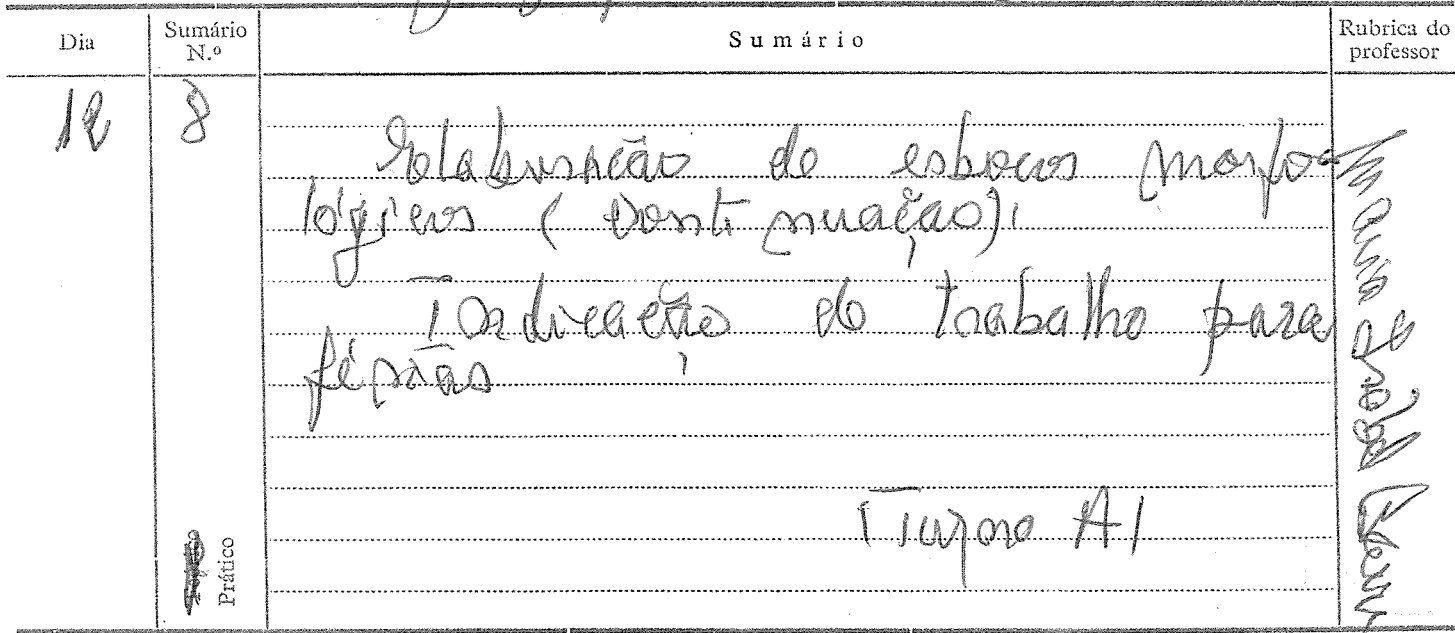 Dia
Sumário N.º
Sumário
Rubrica do professor
12
8
Elaboração de esboços morfo-
lógicos (continuação).
Indicação do trabalho para
férias
Turma A1
Prático
Maria